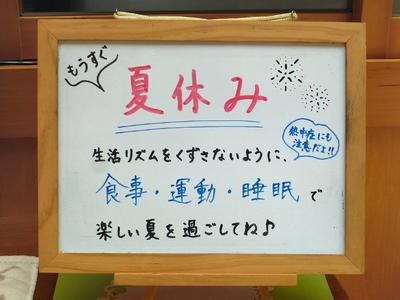 もうすぐ
夏休み
生活リズムをくずさないように、
熱中症にも
注意だよ!!
食事・運動・睡眠で
楽しい夏を過ごしてね♪